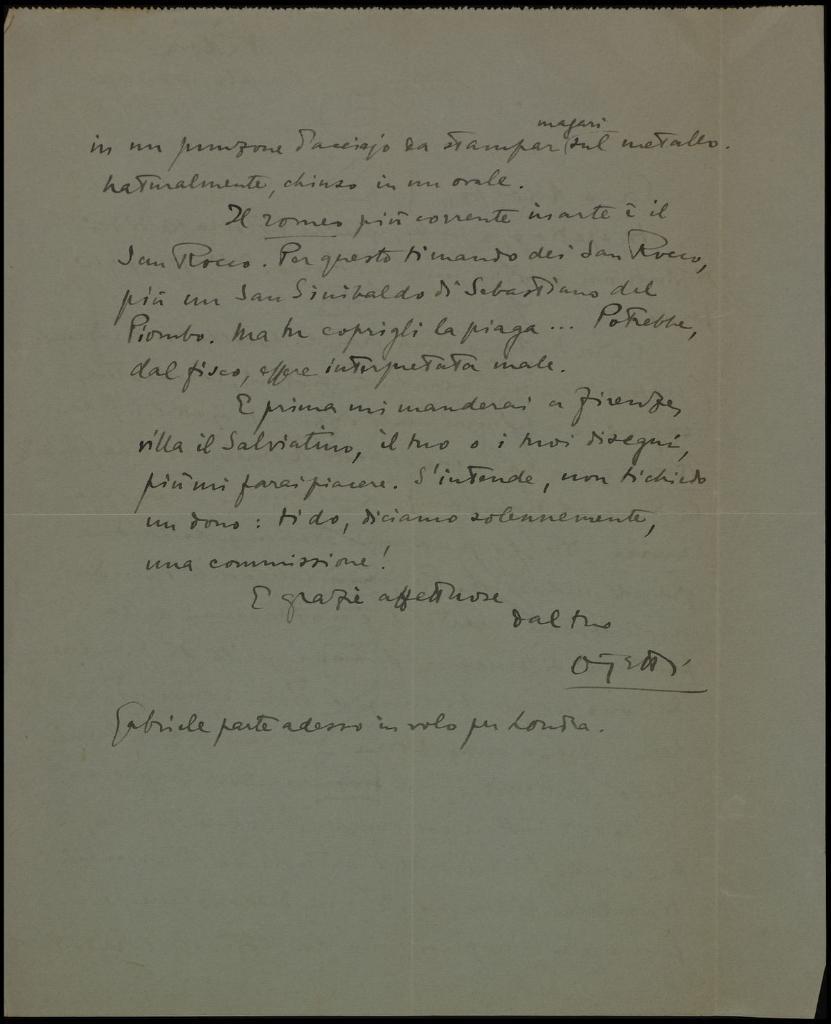 in un punzone d'acciajo da stampar magari sul metallo.
Naturalmente, chiuso in un ovale.
Il romeo più corrente in arte è il
San Rocco. Per questo ti mando dei San Rocco,
più un San Sinibaldo di Sebastiano del
Piombo. Ma tu coprigli la piaga... Potrebbe,
dal fisco, essere interpretata male.
E prima mi manderai a Firenze,
villa il Salviatino, il tuo o i tuoi disegni,
più mi farai piacere. S'intende, non ti chiedo
un dono: ti do, diciamo solennemente,
una commissione!
E grazie affettuose
dal tuo
Ojetti
Gabriele parte adesso in volo per Londra.